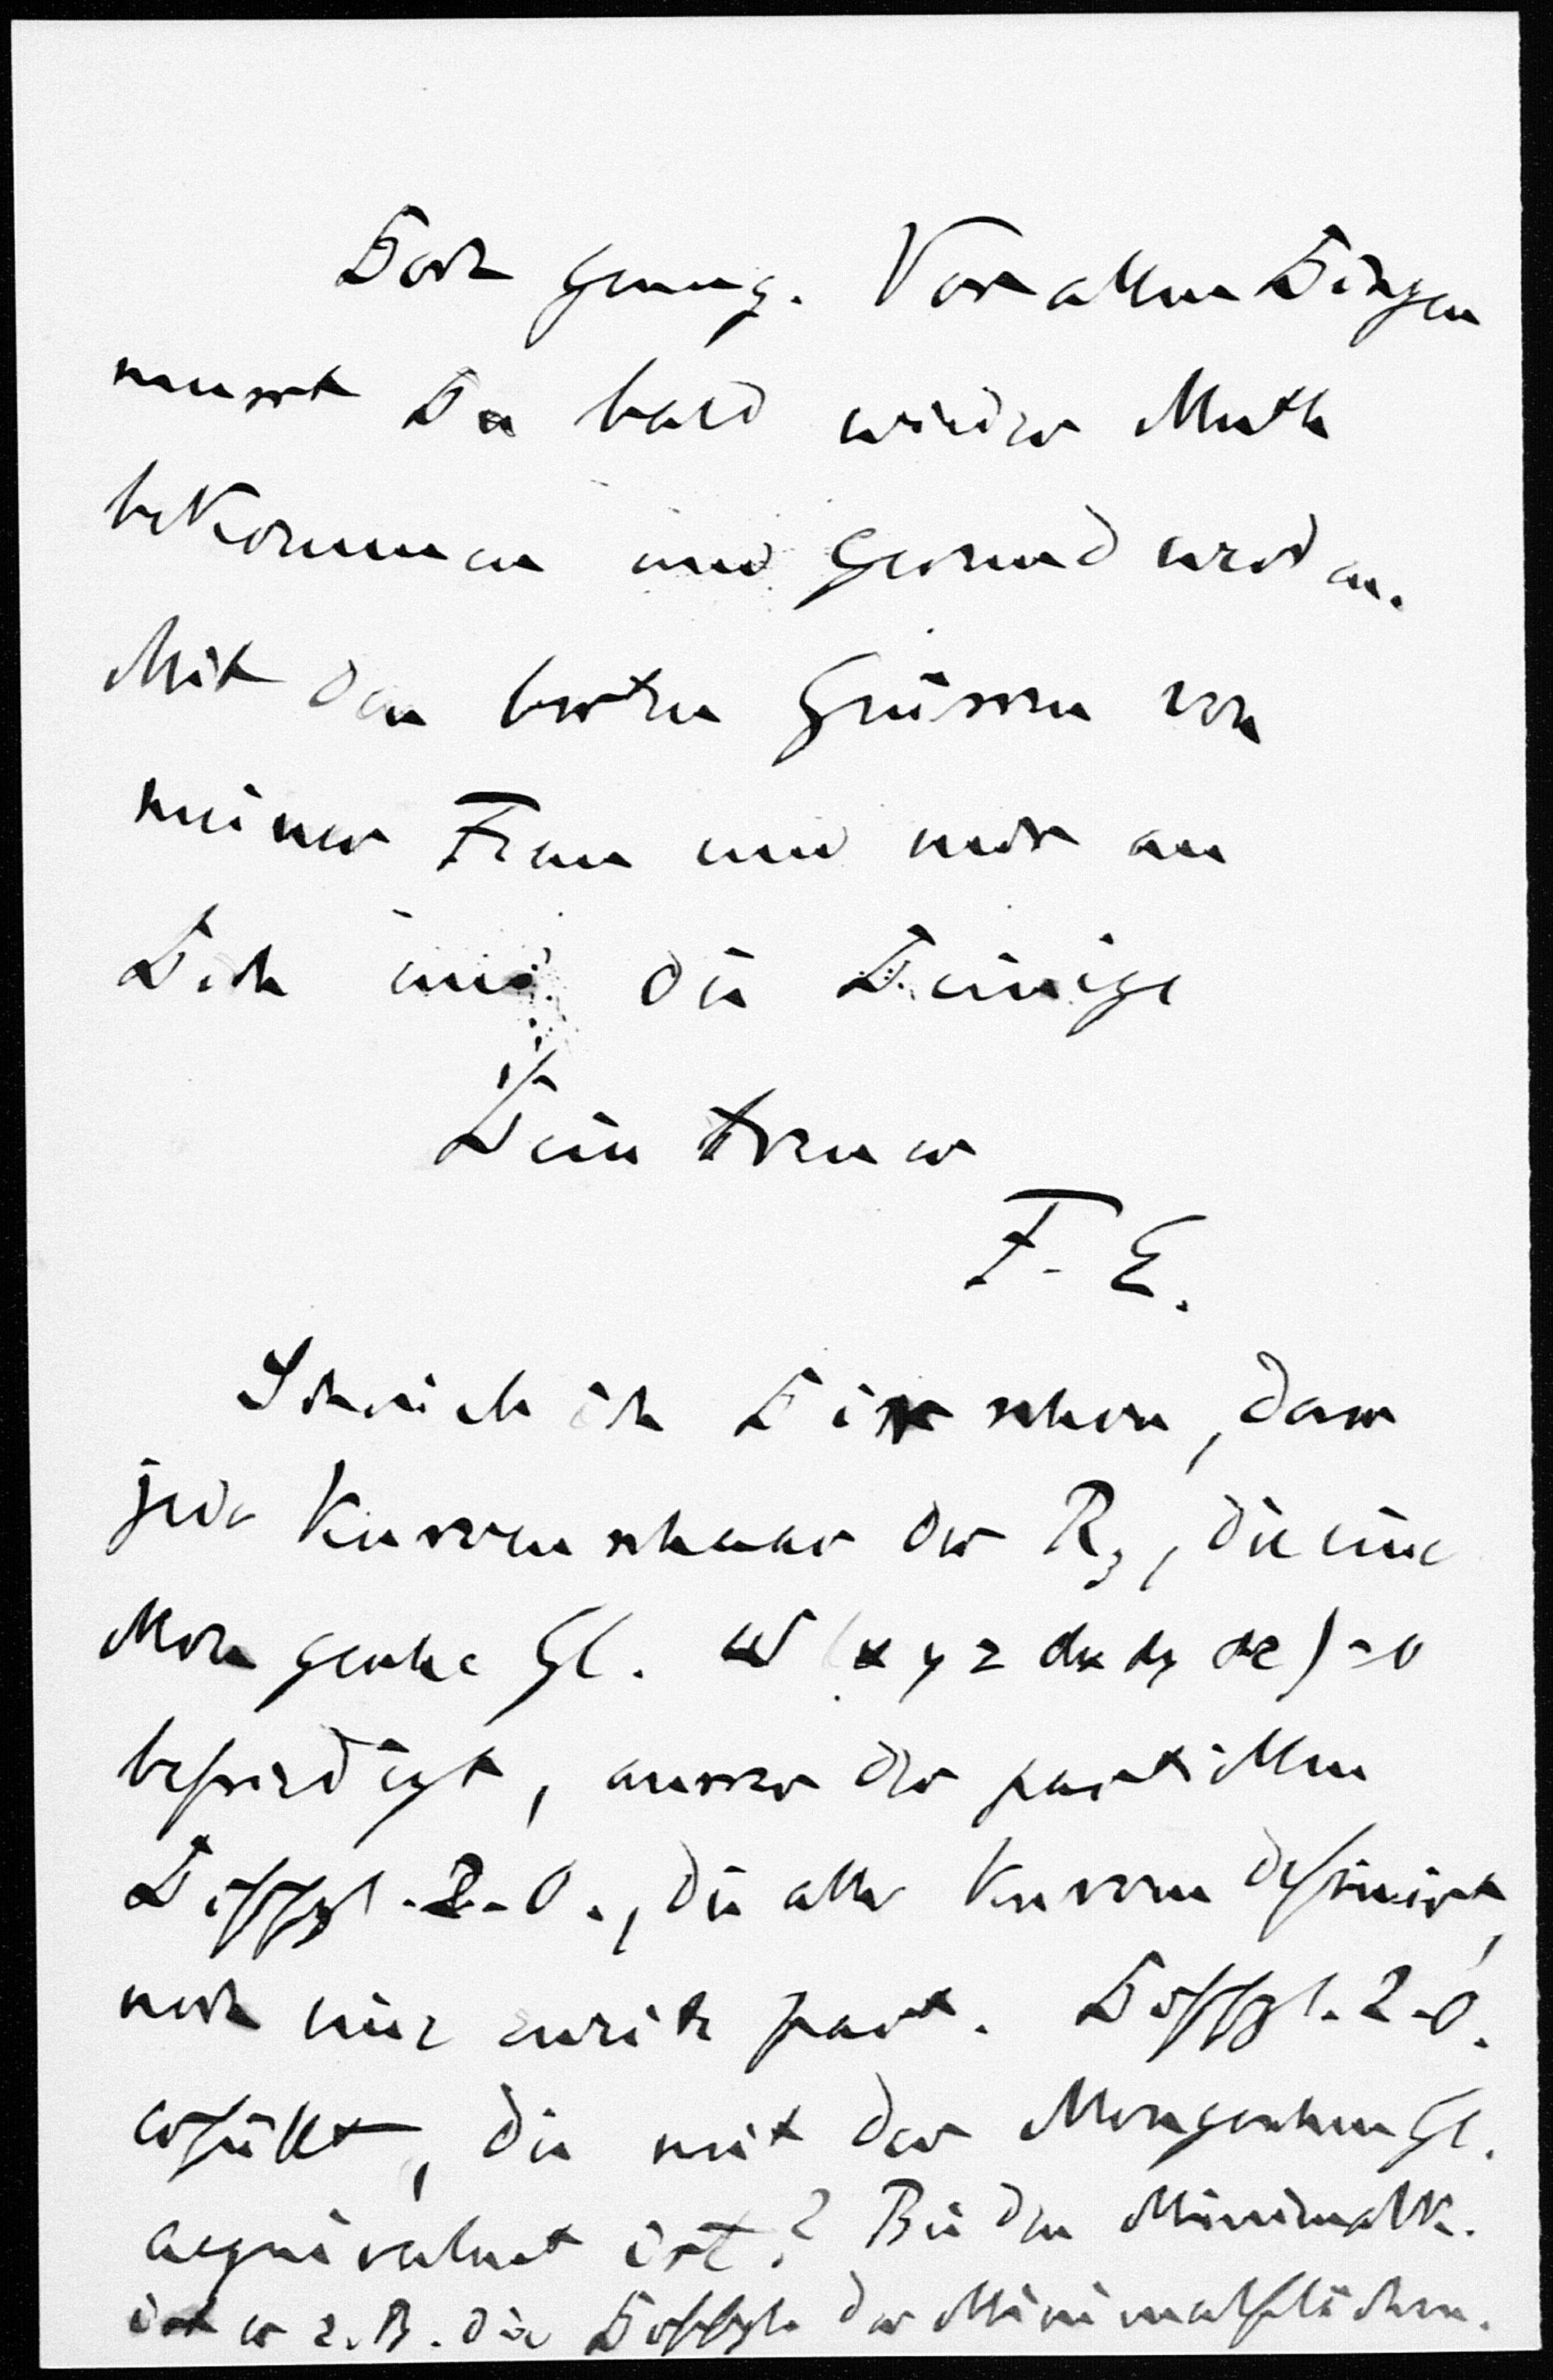 Doch genug. Vor allen Dingen
musst Du bald wieder Muth
bekommen und gesund werden.
Mit den besten Grüssen von
meiner Frau und mir an
Dich und die Deinige
Dein treuer
F. E.
Schrieb ich Dir schon, dass
jede Kurvenschaar der R3, die eine
Mongesche Gl. W (x y z dx dy dz) = 0
befriedigt, ausser der partiellen
Diffgl. 2. O., die alle Kurven definirt,
noch eine zweite part. Diffgl. 2. O.
erfüllt, die mit der Mongeschen Gl.
aequivalent ist? Bei den Minimalk.
ist es z. B. die Diffgl. der Minimalflächen.